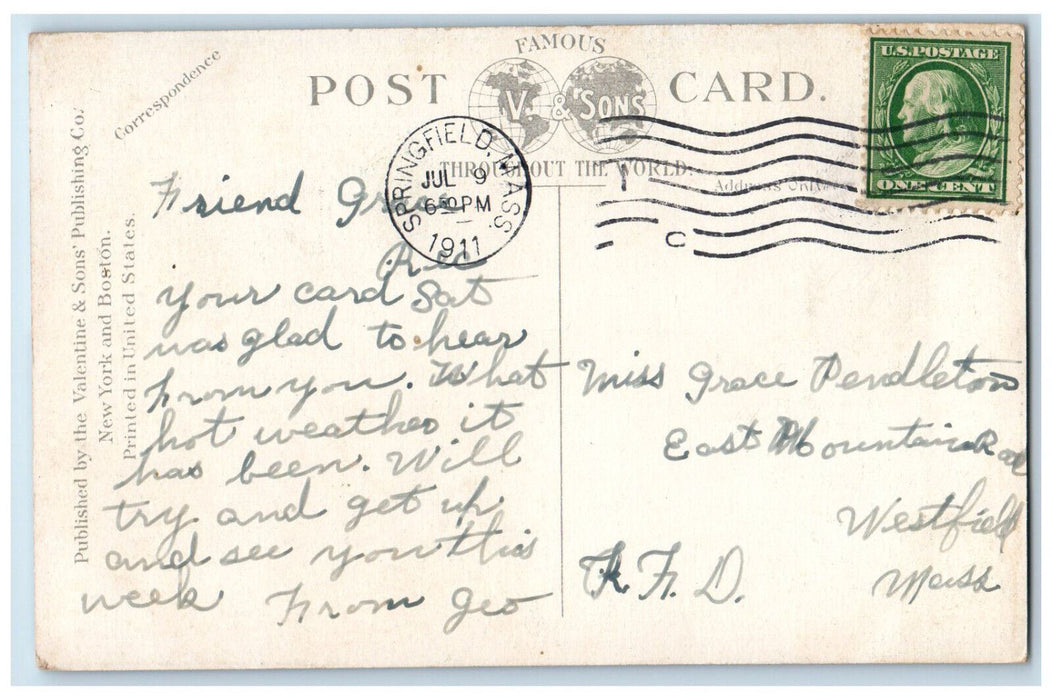 Correspondence
FAMOUS
POST CARD.
V. & SONS
THROUGHOUT THE WORLD.
Published by the Valentine & Sons' Publishing Co.
New York and Boston.
Printed in United States.
SPRINGFIELD, MASS.
JUL 9
6 PM
1911
C
U.S. POSTAGE
ONE CENT
Friend Grace
Rec
your card Sat
was glad to hear
From you. What
hot weather it
has been. Will
try and get up
and see you this
week From Geo
Miss Grace Pendleton
East Mountain Road
Westfield
R. F. D. Mass